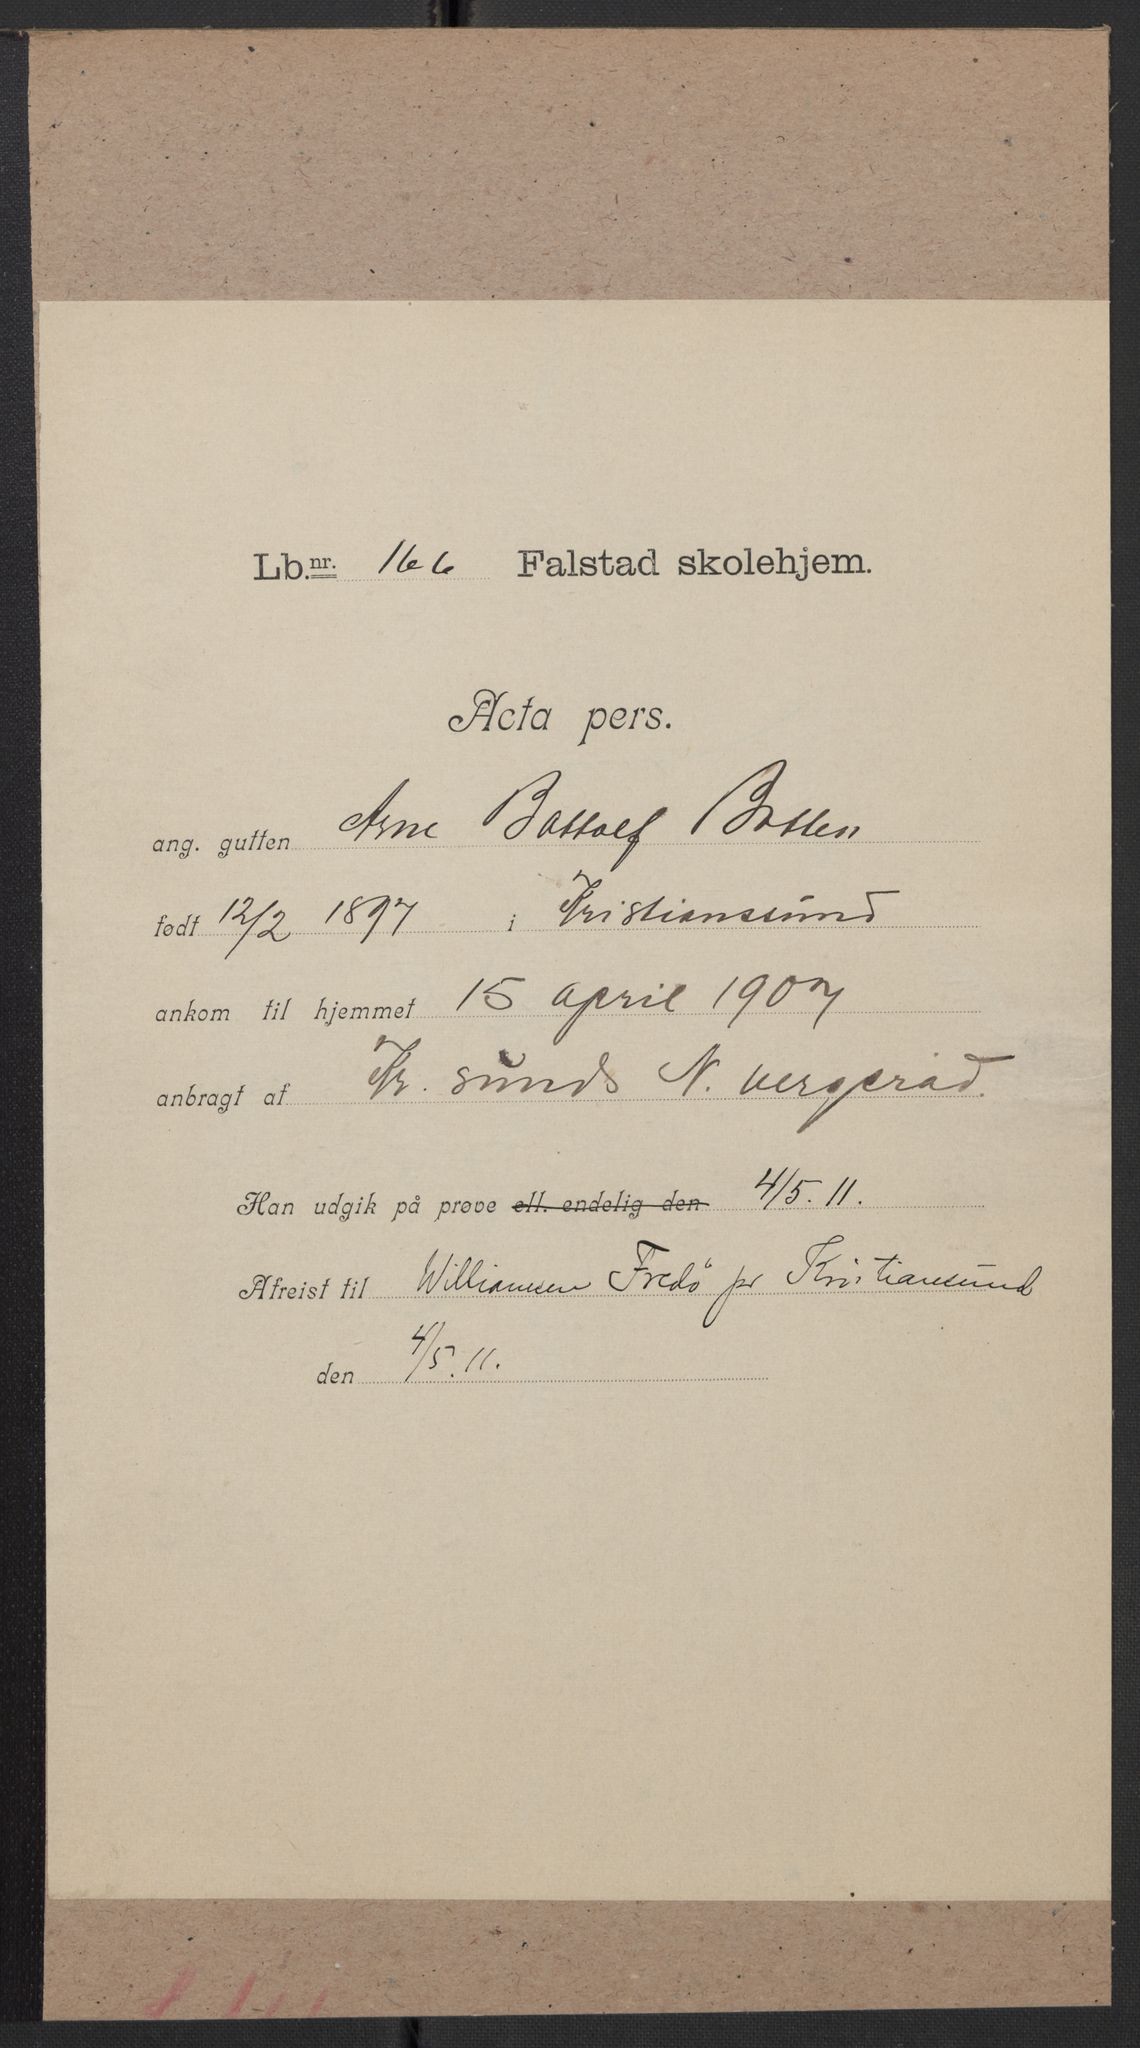 Lb.nr. 166 Falstad skolehjem.
Acta pers.
ang. gutten Arne Bottolf Botten
født 12/2 1897 i Kristianssund
ankom til hjemmet 15 april 1907
anbragt af Kr. sunds N. vergeråd.
Han udgik på prøve ell. endelig den 4/5. 11.
Afreist til Williamsen Fredö pr Kristiansund
den 4/5. 11.